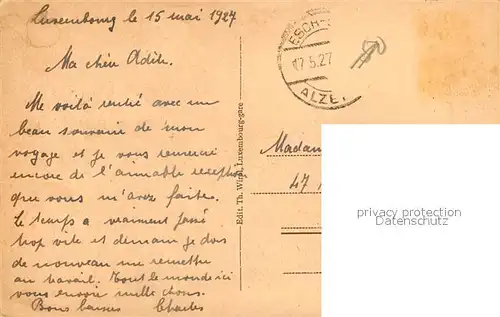 Luxembourg le 15 mai 1927
Ma chère Adèle.
Me voilà rentré avec un
beau souvenir de mon
voyage et je vous remercie
encore de l'aimable reception
que vous m'avez faite.
Le temps a vraiment passé
trop vite et demain je dois
de nouveau me remettre
au travail. Tout le monde ici
vous envoie mille choses.
Bons baisers Charles
Edit. Th. Wirol, Luxembourg-gare
ESCH-
17.5.27
ALZE
Madam
47
privacy protection
www.oldthing.de